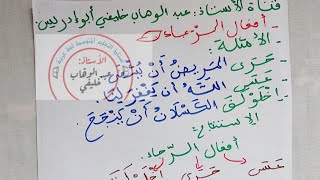 قناة الأستاذ: عبد الوهاب خليفي أبو إدريس
- أفعال الرّجاء:
- الأمثلة:
- حَرَى المريضُ أنْ يُشْفَى
- عَسَى اللهُ أنْ يَغْفِرَ لَنَا.
- اخْلَوْلَقَ الكَسْلَانُ أنْ يَنْجَحَ
- الاستنتاج:
أفعال الرّجاء:
عَسَى حَرَى اخْلَوْلَقَ
الأستاذ:
عبد الوهاب
خليفي